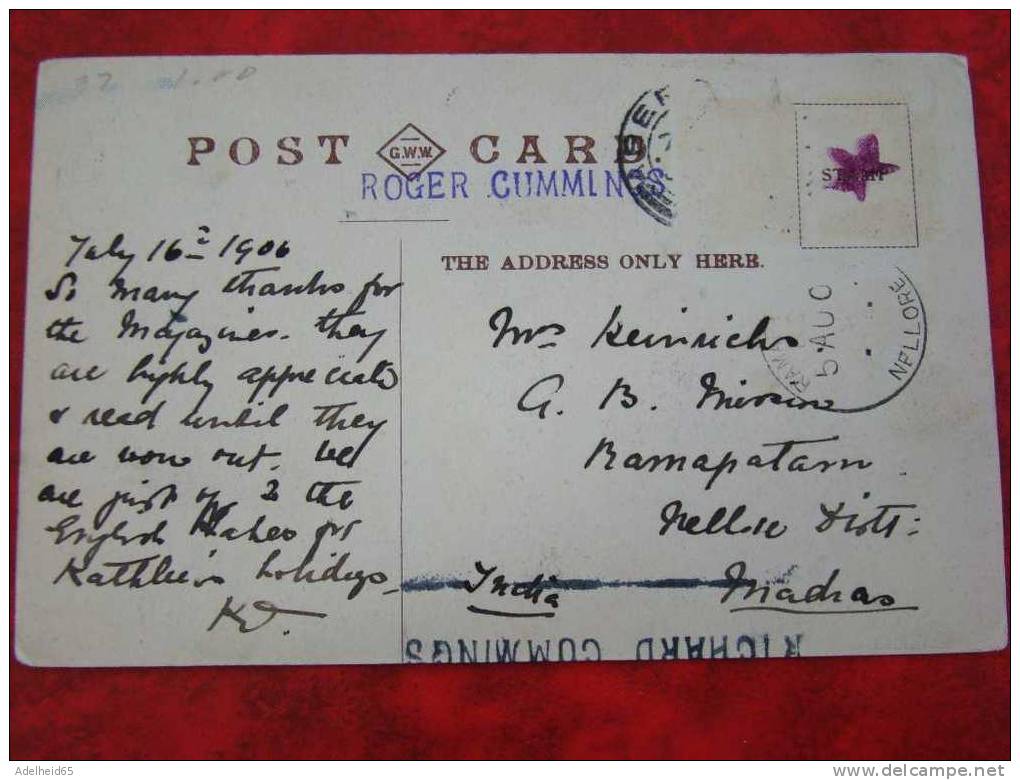 POST G.W.W. CARD
ROGER CUMMINGS
STAMP
THE ADDRESS ONLY HERE.
July 16 1906
So many thanks for
the Magazines. they
are highly appreciated
& read until they
are worn out. We
are just off to the
English Lakes for
Kathleen's holidays
Mrs Heinrichs
A. B. Mission
Ramapatam
Nellore Distt:
India Madras
5 AU 0
RAM
NELLORE
RICHARD CUMMINGS
Adelheid65
www.delcampe.net